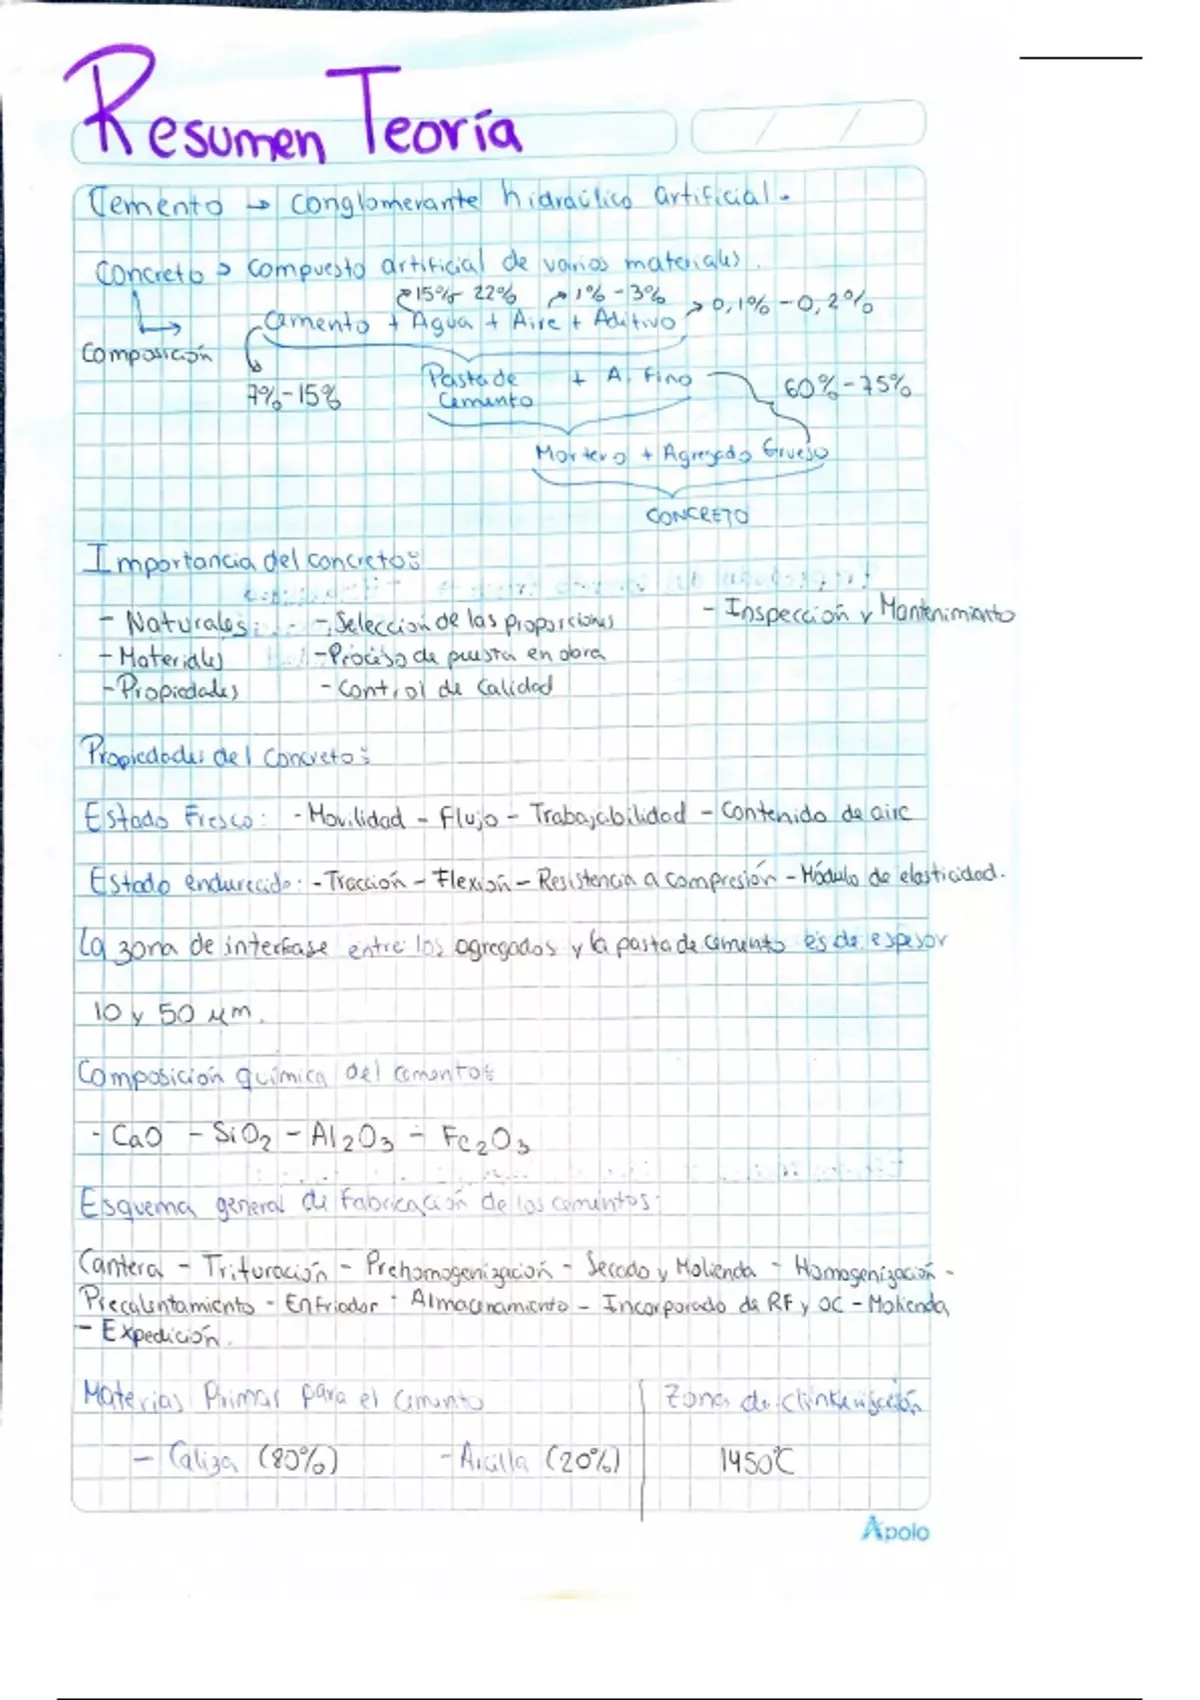 Resumen Teoría
Cemento → conglomerante hidraúlico artificial.
Concreto → compuesto artificial de varios materiales.
15% - 22% 1% - 3% 0,1% - 0,2%
Cemento + Agua + Aire + Aditivo
Composición
7% - 15%
Pasta de Cemento + A. Fino 60% - 75%
Mortero + Agregado Grueso
CONCRETO
Importancia del concreto:
- Naturales - Selección de las proporciones - Inspección y Mantenimiento
- Materiales - Proceso de puesta en obra
- Propiedades - Control de Calidad
Propiedades del Concreto:
Estado Fresco: - Movilidad - Flujo - Trabajabilidad - Contenido de aire
Estado endurecido: - Tracción - Flexión - Resistencia a compresión - Módulo de elasticidad.
La zona de interfase entre los agregados y la pasta de cemento es de espesor
10 y 50 μm.
Composición química del cemento:
- CaO - SiO2 - Al2O3 - Fe2O3
Esquema general de Fabricación de los cementos:
Cantera - Trituración - Prehomogenización - Secado y Molienda - Homogenización -
Precalentamiento - Enfriador - Almacenamiento - Incorporado de RF y OC - Molienda
- Expedición.
Materias Primas para el Cemento Zona de clinkerización
- Caliza (80%) - Arcilla (20%) 1450°C
Apolo